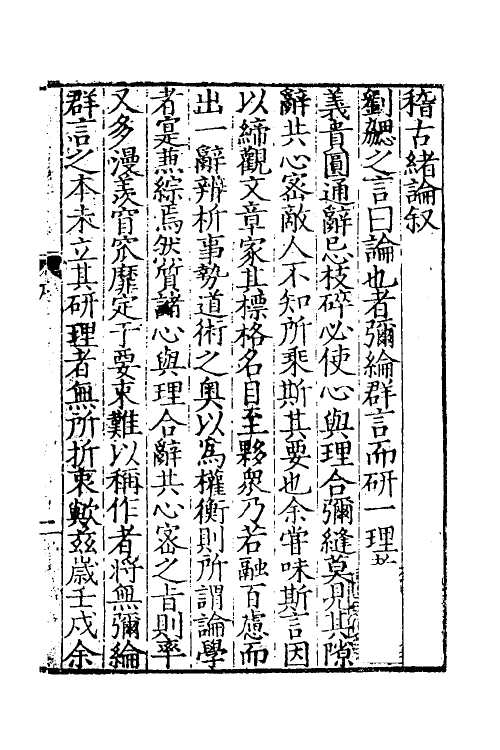 稽古緒論叙
劉勰之言曰論也者彌綸群言而研一理者
義貴圓通辭忌枝碎必使心與理合彌縫莫見其隙
辭共心密敵人不知所乘斯其要也余甞味斯言因
以締觀文章家其標格名目至夥衆乃若融百慮而
出一辭辨析事勢道術之奧以為權衡則所謂論學
者寔兼綜焉然質諸心與理合辭共心密之旨則率
又多漫羨窅冥靡定于要束難以稱作者將無彌綸
群言之本未立其研理者無所折衷歟兹歲壬戌余